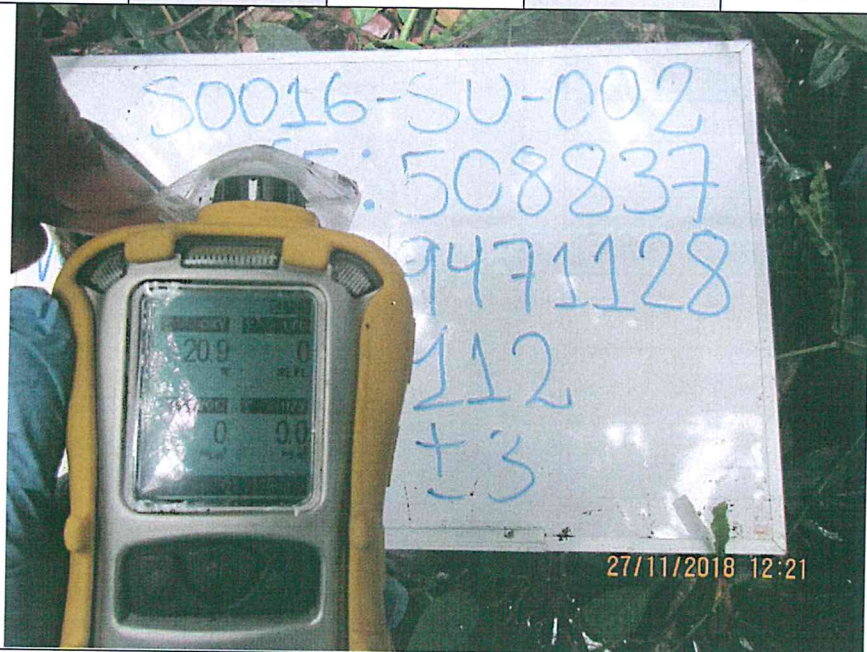 S0016-SU-002
: 508837
9471128
112
±3
20.9 0
%
0 0.0
27/11/2018 12:21